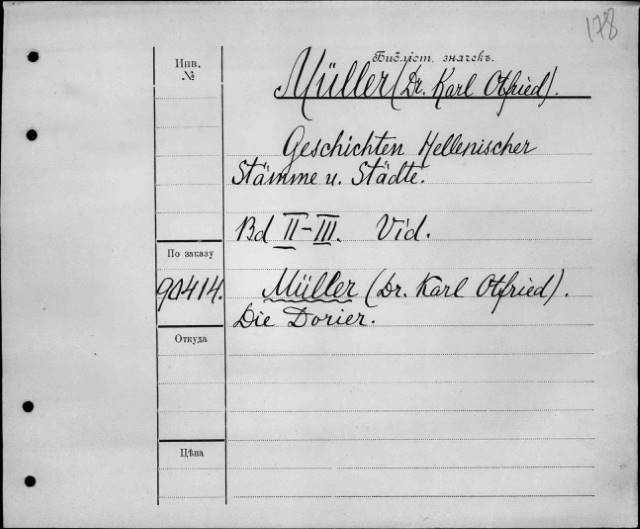 178
Инв.
№
Библіот. значекъ.
Müller (Dr. Karl Otfried).
Geschichten Hellenischer
Stämme u. Städte.
Bd II–III. Vid.
По заказу
90414.
Müller (Dr. Karl Otfried).
Die Dorier.
Откуда
Цѣна